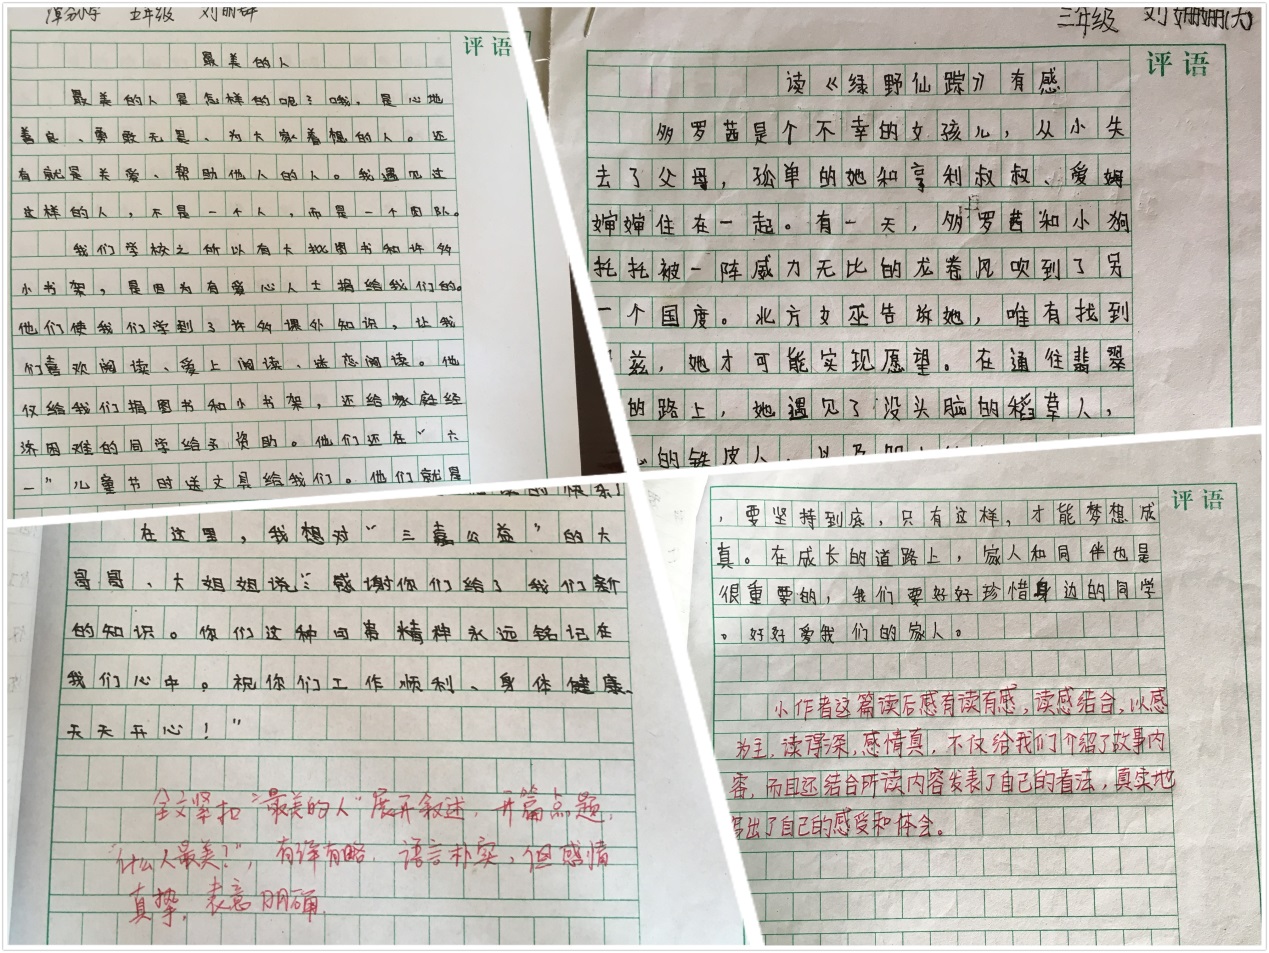 五年级 刘
评语
最美的人
最美的人是怎样的呢？哦，是心地
善良、勇敢无畏、为大家着想的人。还
有就是关爱、帮助他人的人。我遇见过
这样的人，不是一个人，而是一个团队。
我们学校之所以有大批图书和许多
小书架，是因为有爱心人士捐给我们的。
他们使我们学到了许多课外知识，让我
们喜欢阅读、爱上阅读、迷恋阅读。他
仅给我们捐图书和小书架，还给家庭经
济困难的同学给予资助。他们还在“六
一”儿童节时送文具给我们。他们就是
三年级 刘姗姗(大)
评语
读《绿野仙踪》有感
多罗茜是个不幸的女孩儿，从小失
去了父母，孤单的她和亨利叔叔、爱姆
婶婶住在一起。有一天，多罗茜和小狗
托托被一阵威力无比的龙卷风吹到了另
一个国度。北方女巫告诉她，唯有找到
兹，她才可能实现愿望。在通往翡翠
的路上，她遇见了没头脑的稻草人，
的铁皮人，以及
的快乐
在这里，我想对“三嘉公益”的大
哥哥、大姐姐说：“感谢你们给了我们新
的知识。你们这种可贵精神永远铭记在
我们心中。祝你们工作顺利、身体健康、
天天开心！”
全文紧扣“最美的人”展开叙述，开篇点题，
“什么人最美？”，有详有略，语言朴实，但感情
真挚，表意明确。
评语
，要坚持到底，只有这样，才能梦想成
真。在成长的道路上，家人和同伴也是
很重要的，我们要好好珍惜身边的同学
。好好爱我们的家人。
小作者这篇读后感有读有感，读感结合，以感
为主，读得深，感情真，不仅给我们介绍了故事内
容，而且还结合所读内容发表了自己的看法，真实地
写出了自己的感受和体会。